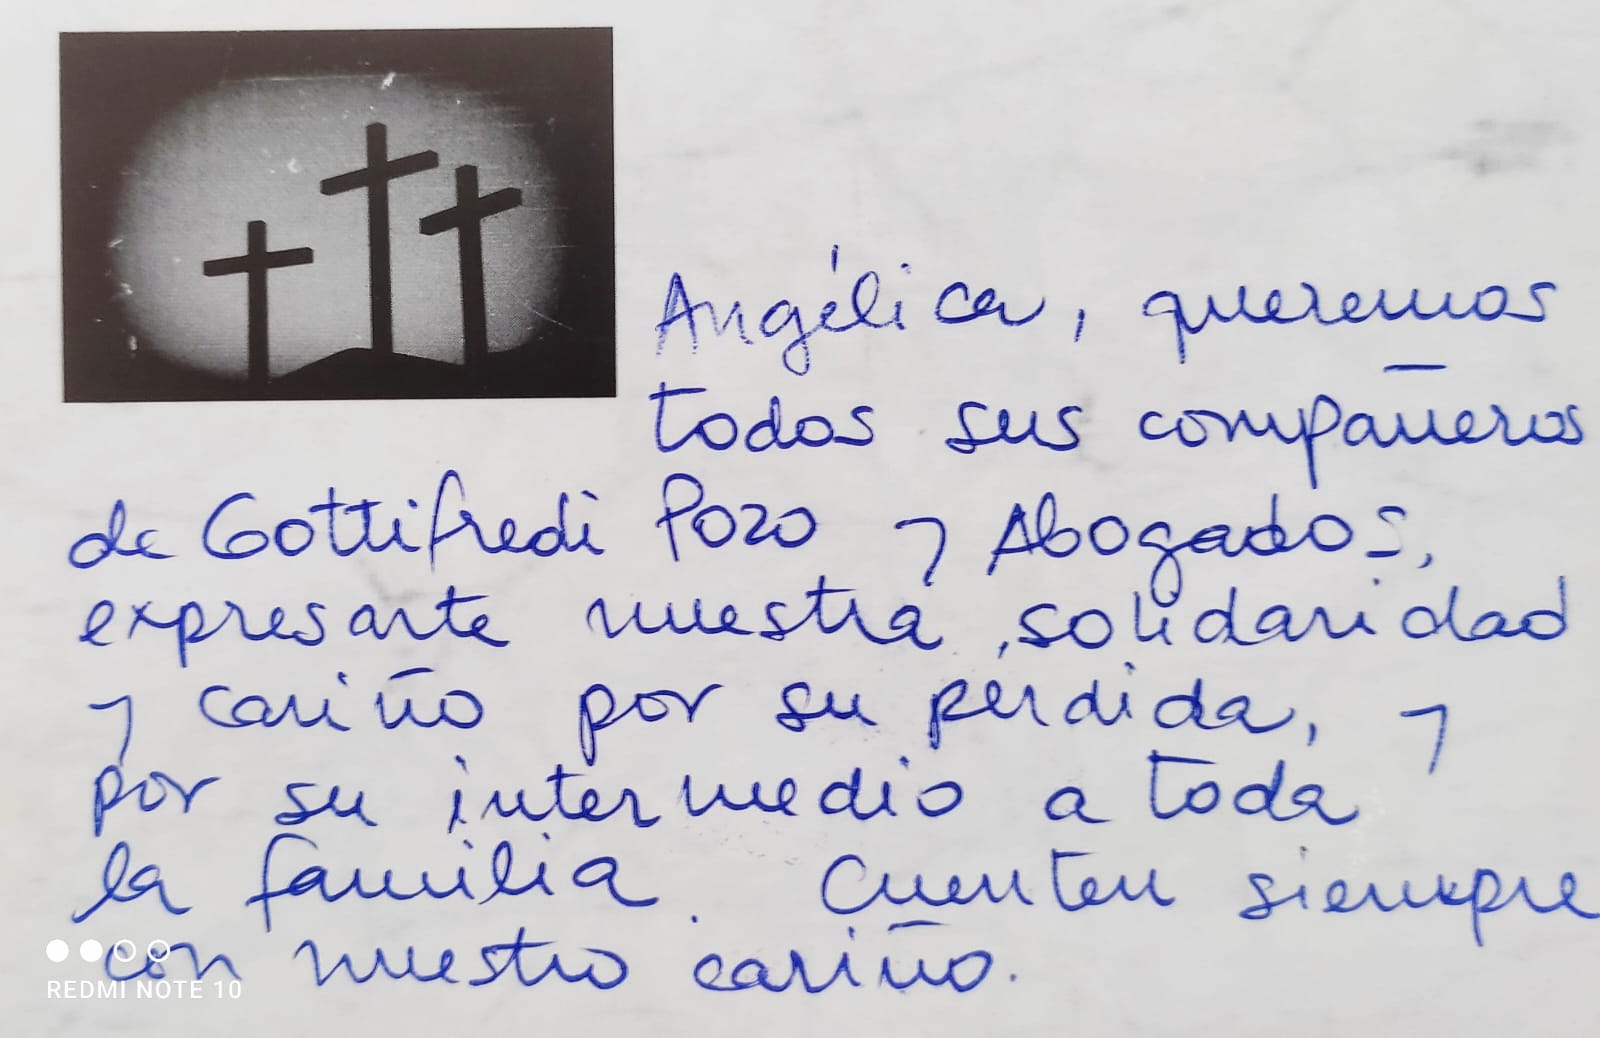 Angélica, queremos
todos sus compañeros
de Gottifredi Pozo y Abogados,
expresarte nuestra solidaridad
y cariño por su perdida, y
por su intermedio a toda
la familia. Cuenten siempre
con nuestro cariño.
REDMI NOTE 10